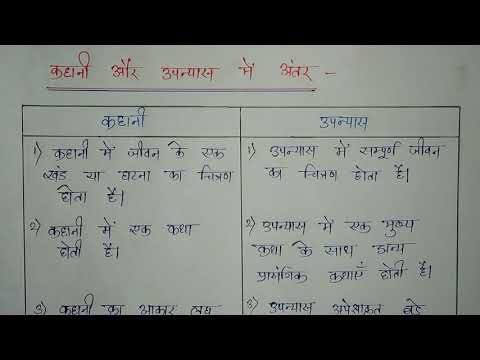 कहानी और उपन्यास में अंतर -
कहानी
1) कहानी में जीवन के एक
खंड या घटना का चित्रण
होता है।
2) कहानी में एक कथा
होती है।
3) कहानी का आकार लघु
उपन्यास
1) उपन्यास में सम्पूर्ण जीवन
का चित्रण होता है।
2) उपन्यास में एक मुख्य
कथा के साथ अन्य
प्रासंगिक कथाएँ होती है।
3) उपन्यास अपेक्षाकृत बड़े